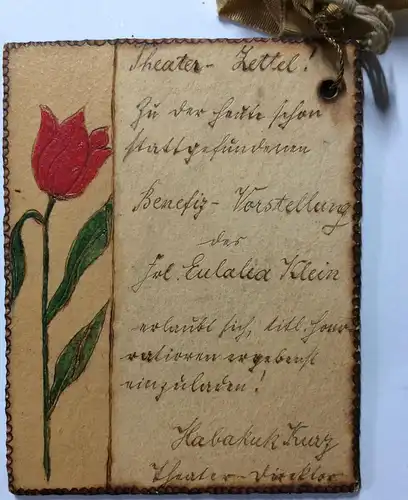 Theater- Zettel!
Zu der heute schon
stattgefundenen
Benefiz- Vorstellung
des
Frl. Eulalia Klein
erlaubt sich, titl. Hono-
ratioren ergebenst
einzuladen!
Habakuk Kurz
Theater- Direktor